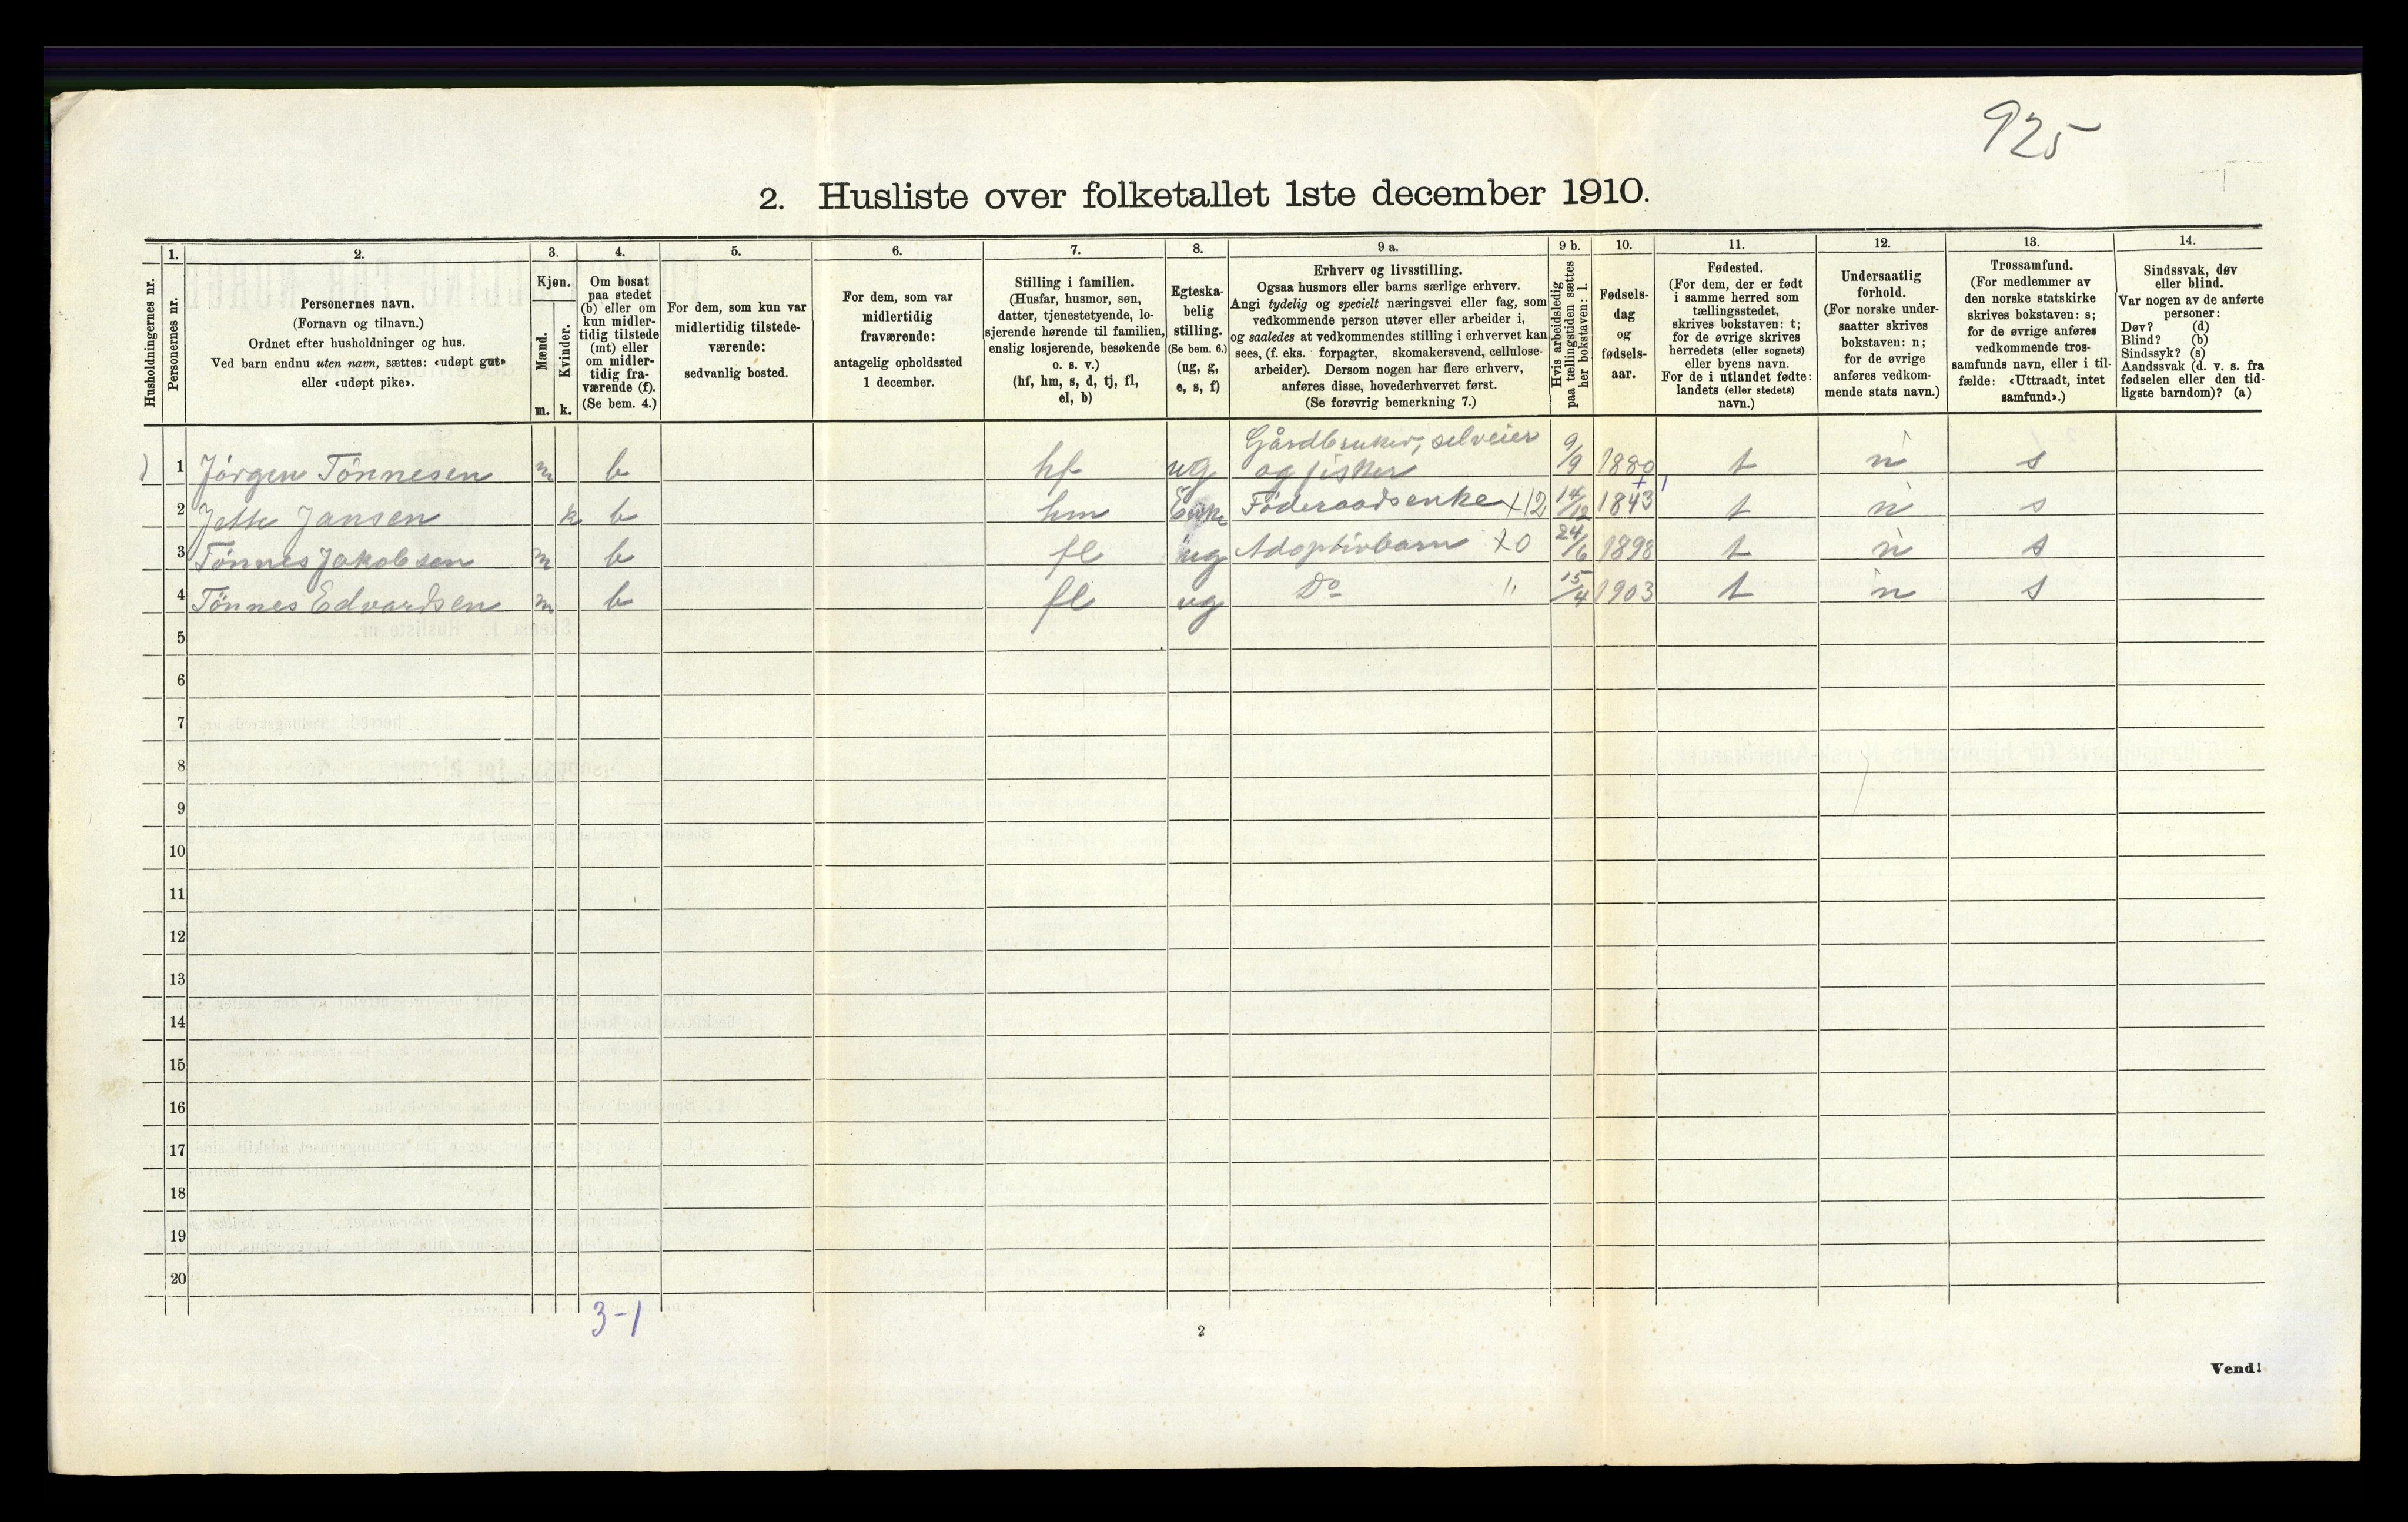 925
2. Husliste over folketallet 1ste december 1910.
Husholdningernes nr.
1.
Personernes nr.
2.
Personernes navn.
(Fornavn og tilnavn.)
Ordnet efter husholdninger og hus.
Ved barn endnu uten navn, sættes: «udøpt gut»
eller «udøpt pike».
3.
Kjøn.
Mænd.
Kvinder.
m. k.
4.
Om bosat
paa stedet
(b) eller om
kun midler-
tidig tilstede
(mt) eller
om midler-
tidig fra-
værende (f).
(Se bem. 4.)
5.
For dem, som kun var
midlertidig tilstede-
værende:
sedvanlig bosted.
6.
For dem, som var
midlertidig
fraværende:
antagelig opholdssted
1 december.
7.
Stilling i familien.
(Husfar, husmor, søn,
datter, tjenestetyende, lo-
sjerende hørende til familien,
enslig losjerende, besøkende
o. s. v.)
(hf, hm, s, d, tj, fl,
el, b)
8.
Egteska-
belig
stilling.
(Se bem. 6.)
(ug, g,
e, s, f)
9 a.
Erhverv og livsstilling.
Ogsaa husmors eller barns særlige erhverv.
Angi tydelig og specielt næringsvei eller fag, som
vedkommende person utøver eller arbeider i,
og saaledes at vedkommendes stilling i erhvervet kan
sees, (f. eks. forpagter, skomakersvend, cellulose-
arbeider). Dersom nogen har flere erhverv,
anføres disse, hovederhvervet først.
(Se forøvrig bemerkning 7.)
9 b.
Hvis arbeidsledig
paa tællingstiden sættes
her bokstaven: l.
10.
Fødsels-
dag
og
fødsels-
aar.
11.
Fødested.
(For dem, der er født
i samme herred som
tællingsstedet,
skrives bokstaven: t;
for de øvrige skrives
herredets (eller sognets)
eller byens navn.
For de i utlandet fødte:
landets (eller stedets)
navn.)
12.
Undersaatlig
forhold.
(For norske under-
saatter skrives
bokstaven: n;
for de øvrige
anføres vedkom-
mende stats navn.)
13.
Trossamfund.
(For medlemmer av
den norske statskirke
skrives bokstaven: s;
for de øvrige anføres
vedkommende tros-
samfunds navn, eller i til-
fælde: «Uttraadt, intet
samfund».)
14.
Sindssvak, døv
eller blind.
Var nogen av de anførte
personer:
Døv? (d)
Blind? (b)
Sindssyk? (s)
Aandssvak (d. v. s. fra
fødselen eller den tid-
ligste barndom)? (a)
1 Jørgen Tönnesen m b hf ug Gårdbruker, selveier og fisker 9/9 1880 t n s
2 Jette Jansen k b hm Enke Föderaadsenke X12 14/12 1843 t n s
3 Tönnes Jakobsen m b fl ug Adoptivbarn X0 24/6 1898 t n s
4 Tönnes Edvardsen m b fl ug Do " 15/4 1903 t n s
5
6
7
8
9
10
11
12
13
14
15
16
17
18
19
20
3-1
2
Vend!